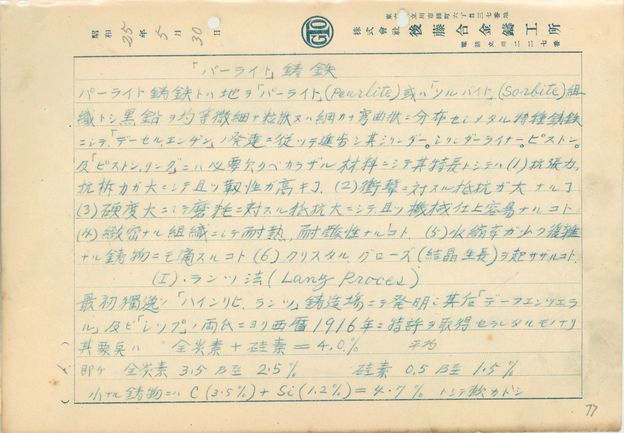 昭和25年5月30日
東京都立川市錦町六丁目三七番地
株式会社 後藤合金鋳工所
電話立川二二七番
GTO
「パーライト」鋳鉄
パーライト鋳鉄トハ地ヲ「パーライト」(Pearlite)或ハ「ソルバイト」(Sorbite)組
織トシ黒鉛ヲ均等微細ナ粒状又ハ細カナ彎曲状ニ分布セシメタル特種鋳鉄
ニシテ、「デーゼル、エンヂン」ノ発達ニ従ツテ進歩シ其シリンダー。シリンダーライナー。ピストン。
及「ピストン、リング」ニハ必要欠クベカラザル材料ニシテ其特長トシテハ(1)抗張力、
抗折力ガ大ニシテ且ツ靱性ガ高キコト、(2)衝撃ニ対スル抵抗ガ大ナルコト
(3)硬度大ニシテ磨耗ニ対スル抵抗大ニシテ、且ツ機械仕上容易ナルコト
(4)緻密ナル組織ニシテ耐熱、耐酸性ナルコト、(5)収縮率ガ少ク複雑
ナル鋳物ニモ適スルコト(6)クリスタル グローズ(結晶生長)ヲ起サザルコト、
(I).ランツ法(Lang Proces)
最初獨逸ノ「ハインリヒ、ランツ」鋳造場ニテ発明シ其后「デーフエンツエラ
ル」及ビ「シツプ」ノ両氏ニヨリ西暦1916年ニ特許ヲ取得セラレタルモノナリ
其要点ハ 全炭素+硅素=4.0% 平均
即チ 全炭素 3.5乃至2.5% 硅素 0.5乃至1.5%
小ナル鋳物ニハ C(3.5%)+Si(1.2%)=4.7% トシテ軟カトシ
77